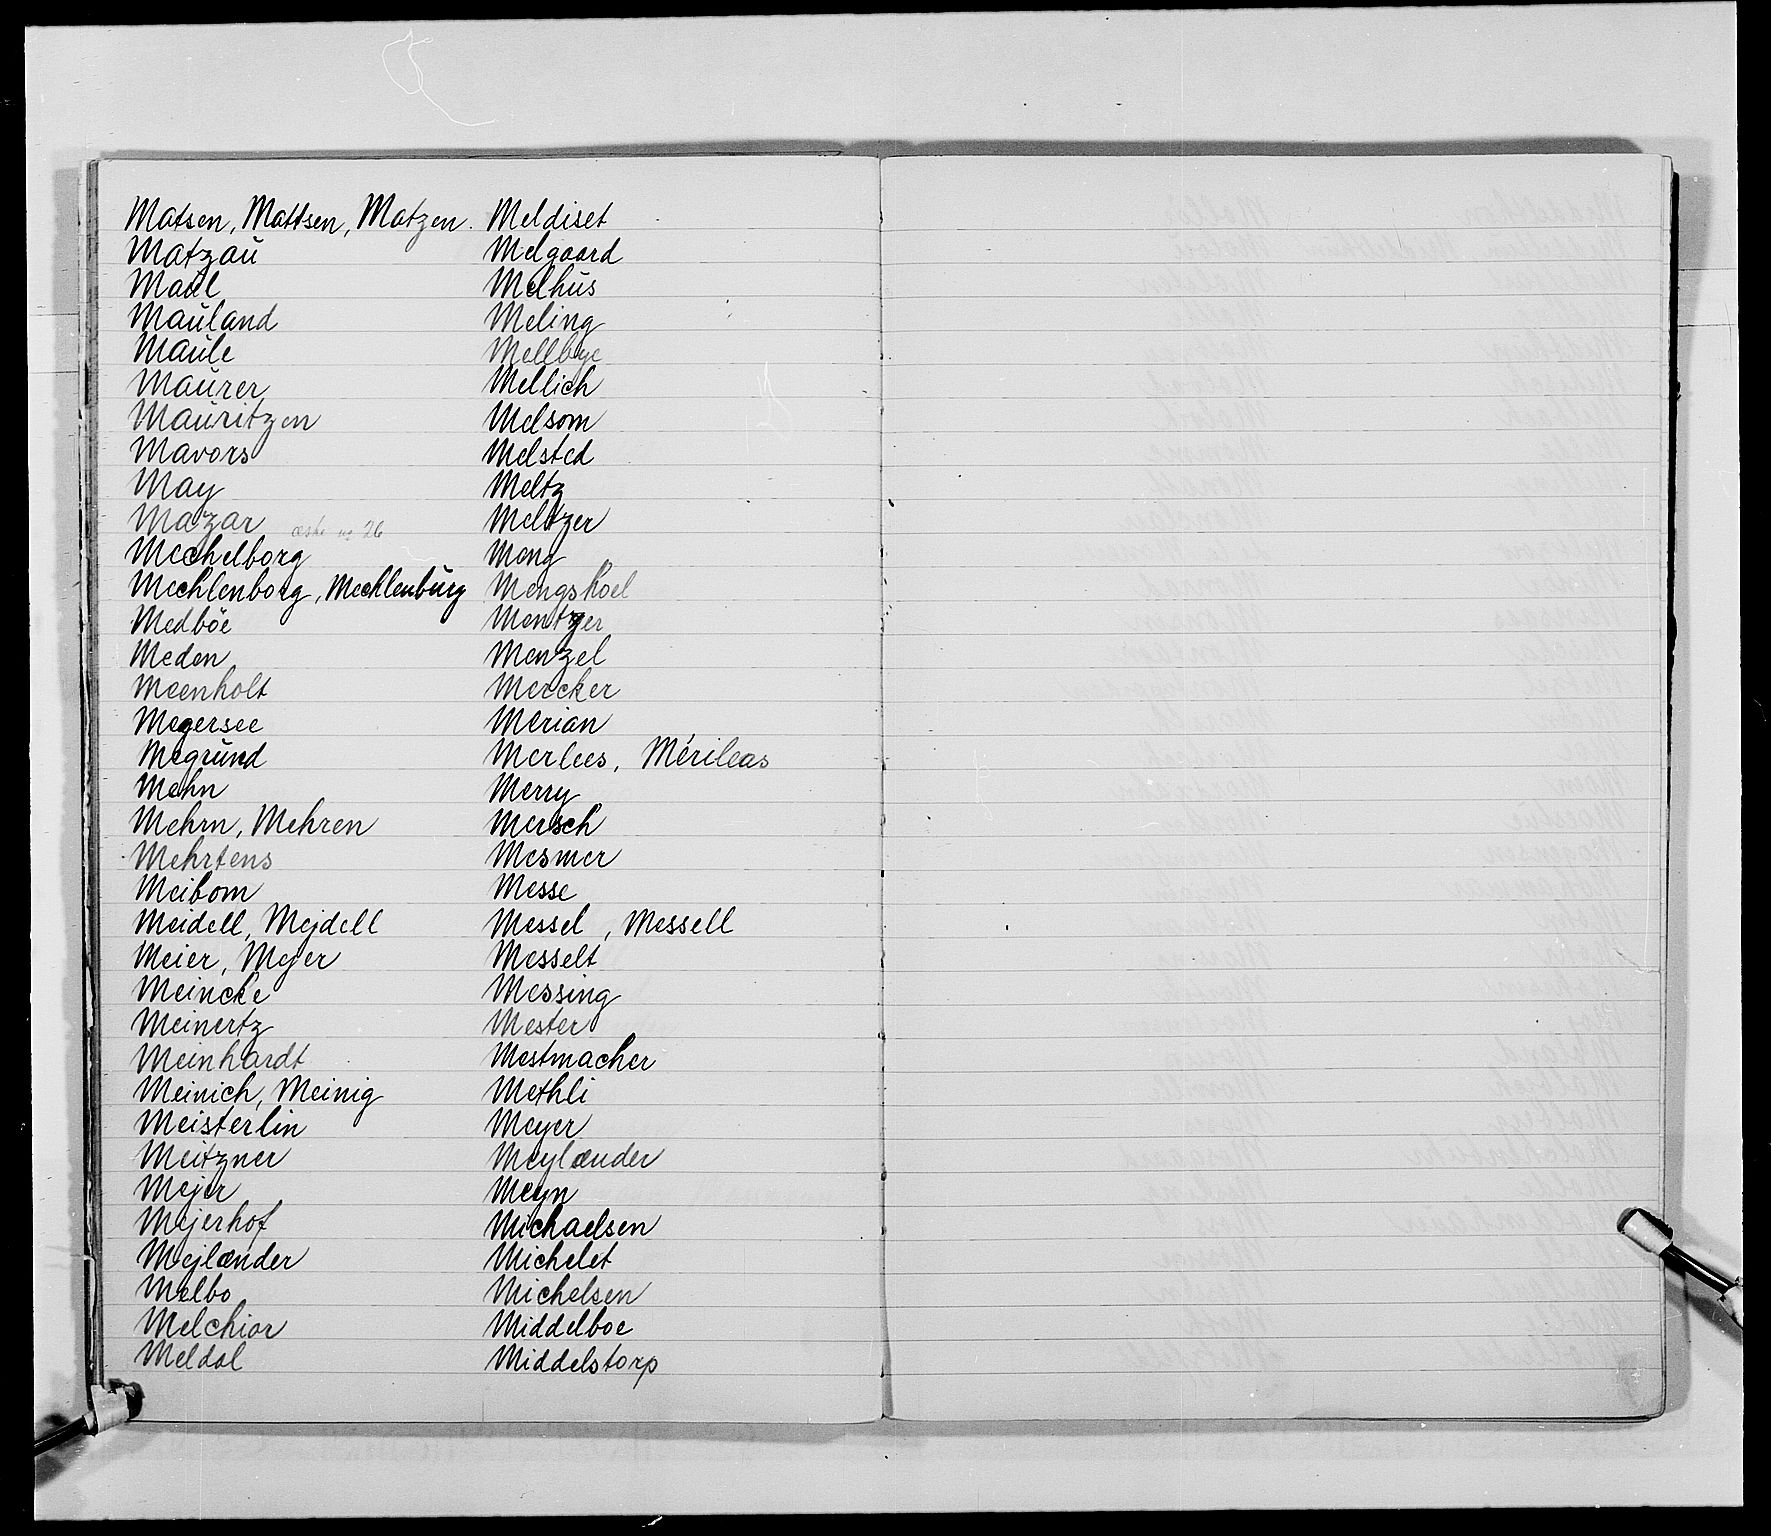 Matsen, Mattsen, Matzen.
Matzaŭ
Maŭl
Maŭland
Maŭle
Maŭrer
Maŭritzen
Mavors
May
Mazar
Mechelborg
Mechlenborg, Mecklenbŭrg
Medböe
Meden
Meenholt
Megersee
Megrŭnd
Mehn
Mehrn, Mehren
Mehrtens
Meibom
Meidell, Mejdell
Meier, Mejer
Meincke
Meinertz
Meinhardt
Meinich, Meinig
Meisterlin
Meitzner
Mejer
Mejerhof
Mejlænder
Melbo
Melchior
Meldal
Meldiset
Melgaard
Melhŭs
Meling
Mellbye
Mellich
Melsom
Melsted
Meltz
Meltzer
Meng
Mengshoel
Mentzer
Menzel
Mercker
Merian
Merlees, Mérileas
Merry
Mersch
Mesmer
Messe
Messel, Messell
Messelt
Messing
Mester
Mestmacher
Methli
Meyer
Meylænder
Meyn
Michaelsen
Michelet
Michelsen
Middelboe
Middelstorp